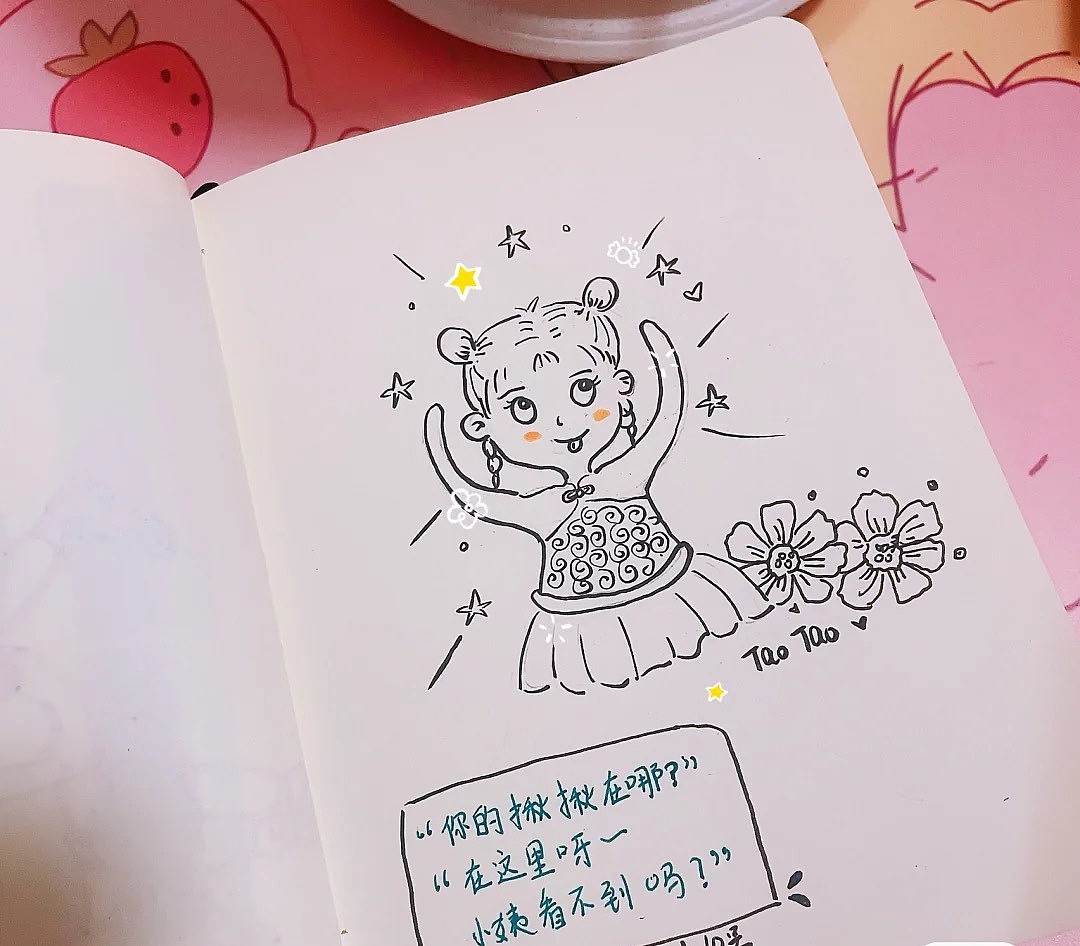 Tao Tao
“你的揪揪在哪？”
“在这里呀～
小姨看不到吗？”